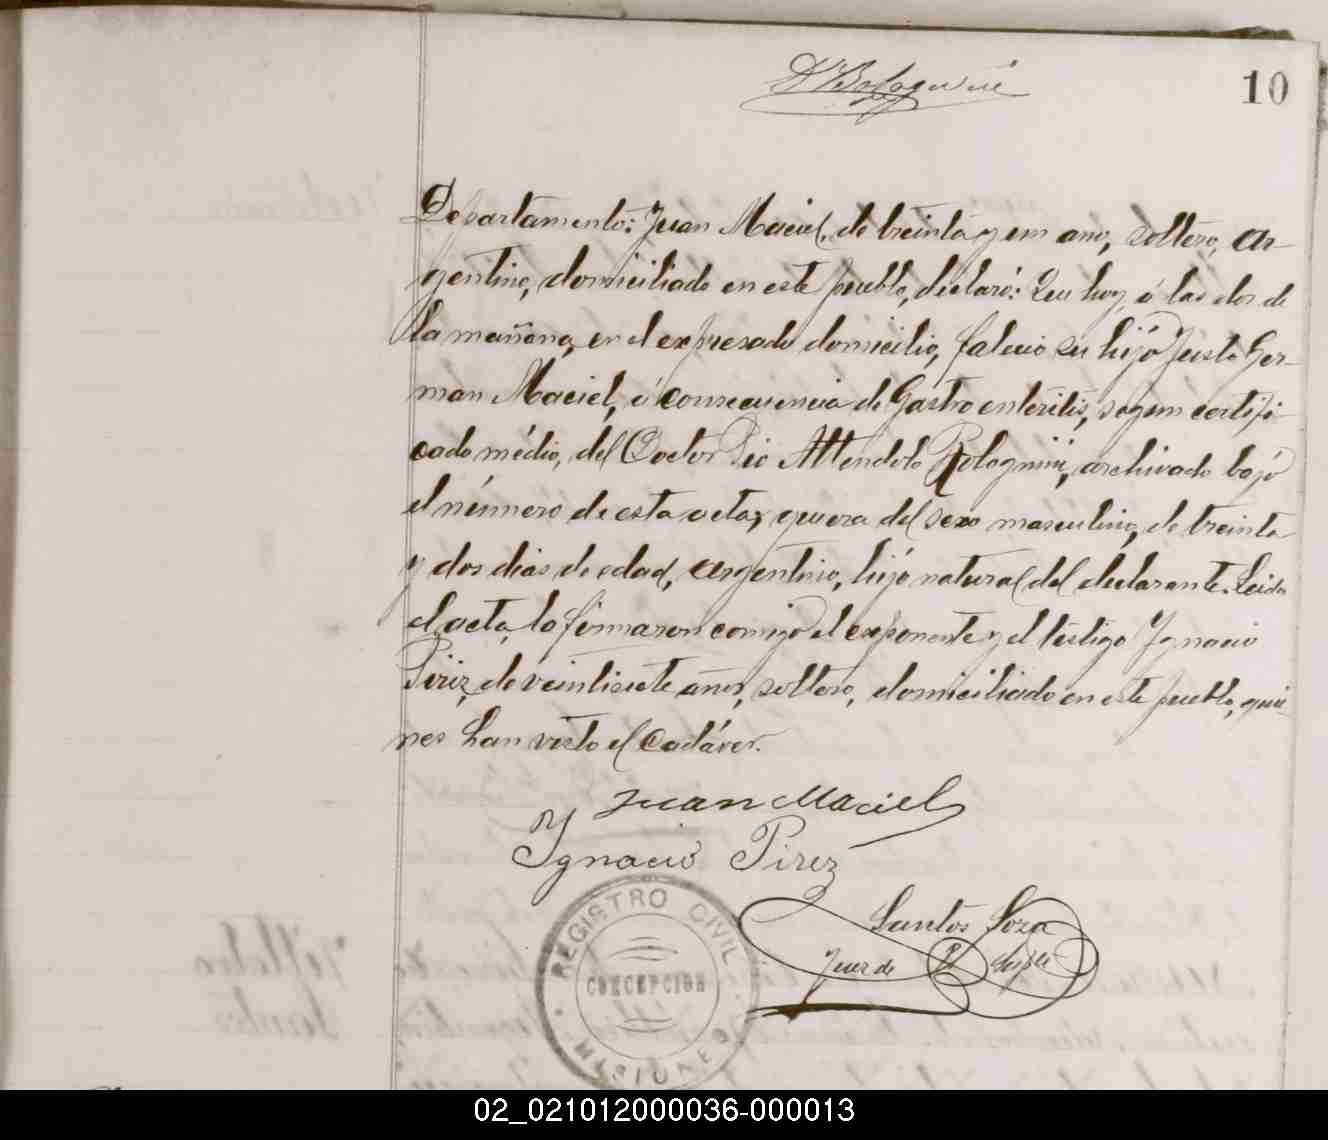 10
Departamento: Juan Maciel, de treinta y un año, soltero, ar-
gentino, domiciliado en este pueblo, declaró: Que hoy, á las dos de
la mañana, en el expresado domicilio, falecio su hijo Justo Ger-
man Maciel, á consecuencia de Gastro enteritis, segun certifi-
cado médio, del Doctor Pio Attendolo Bolognini, archivado bajo
el número de esta acta; que era del sexo masculino, de treinta
y dos dias de edad, argentino, hijo natural del declarante. Leida
el acta, la firmaron comigo el exponente y el testigo Ygnacio
Pirez, de veintisiete años, soltero, domiciliado en este pueblo, quie-
nes han visto el cadáver.
Juan Maciel
Ygnacio Pirez
Santos Soza
Juez de P. Suplte
REGISTRO CIVIL
CONCEPCION
MISIONES
02_021012000036-000013